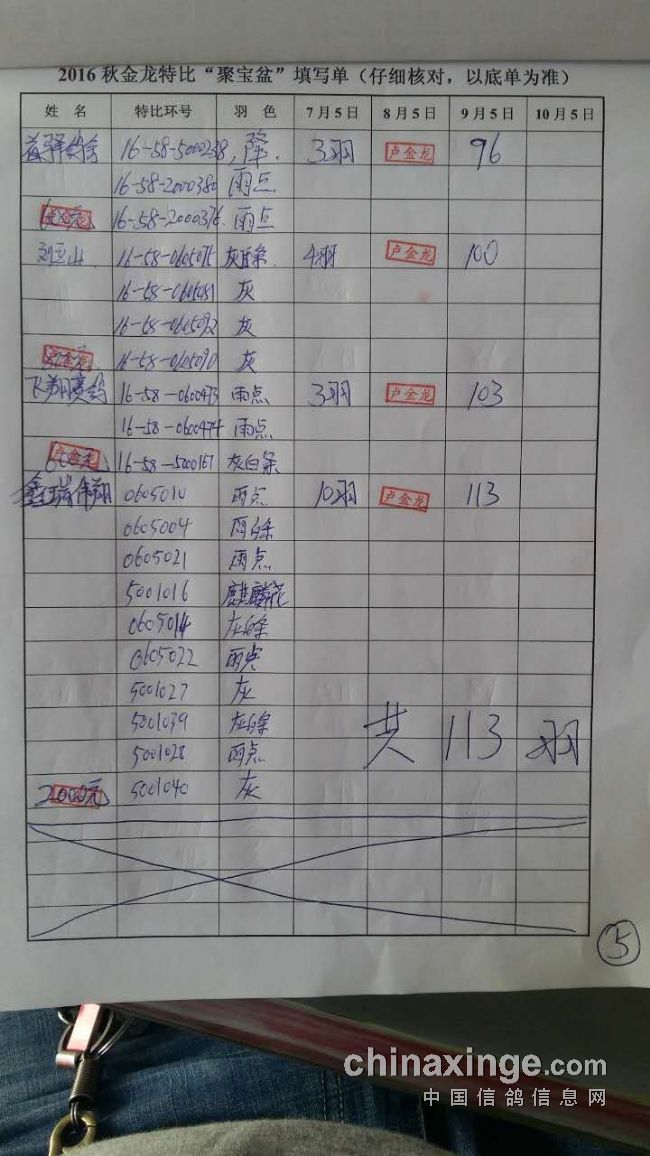 2016秋金龙特比“聚宝盆”填写单（仔细核对，以底单为准）
姓 名 特比环号 羽 色 7月5日 8月5日 9月5日 10月5日
16-58-5000238 降. 3羽 卢金龙 96
16-58-2000380 雨点
16-58-2000376 雨点
刘玉山 16-58-0605075 灰白条 4羽 卢金龙 100
16-58-0605081 灰
16-58-0605092 灰
16-58-0605090 灰
飞翔赛鸽 16-58-0600473 雨点 3羽 卢金龙 103
16-58-0600474 雨点
卢金龙 16-58-5000167 灰白条
鑫瑞伟翔 0605010 雨点 10羽 卢金龙 113
0605004 雨白条
0605021 雨点
5001016 麒麟花
0605014 灰白条
0605022 雨点
5001027 灰
5001039 灰白条
5001028 雨点
共113羽
2000元 5001040 灰
5
chinaxinge.com
中国信鸽信息网